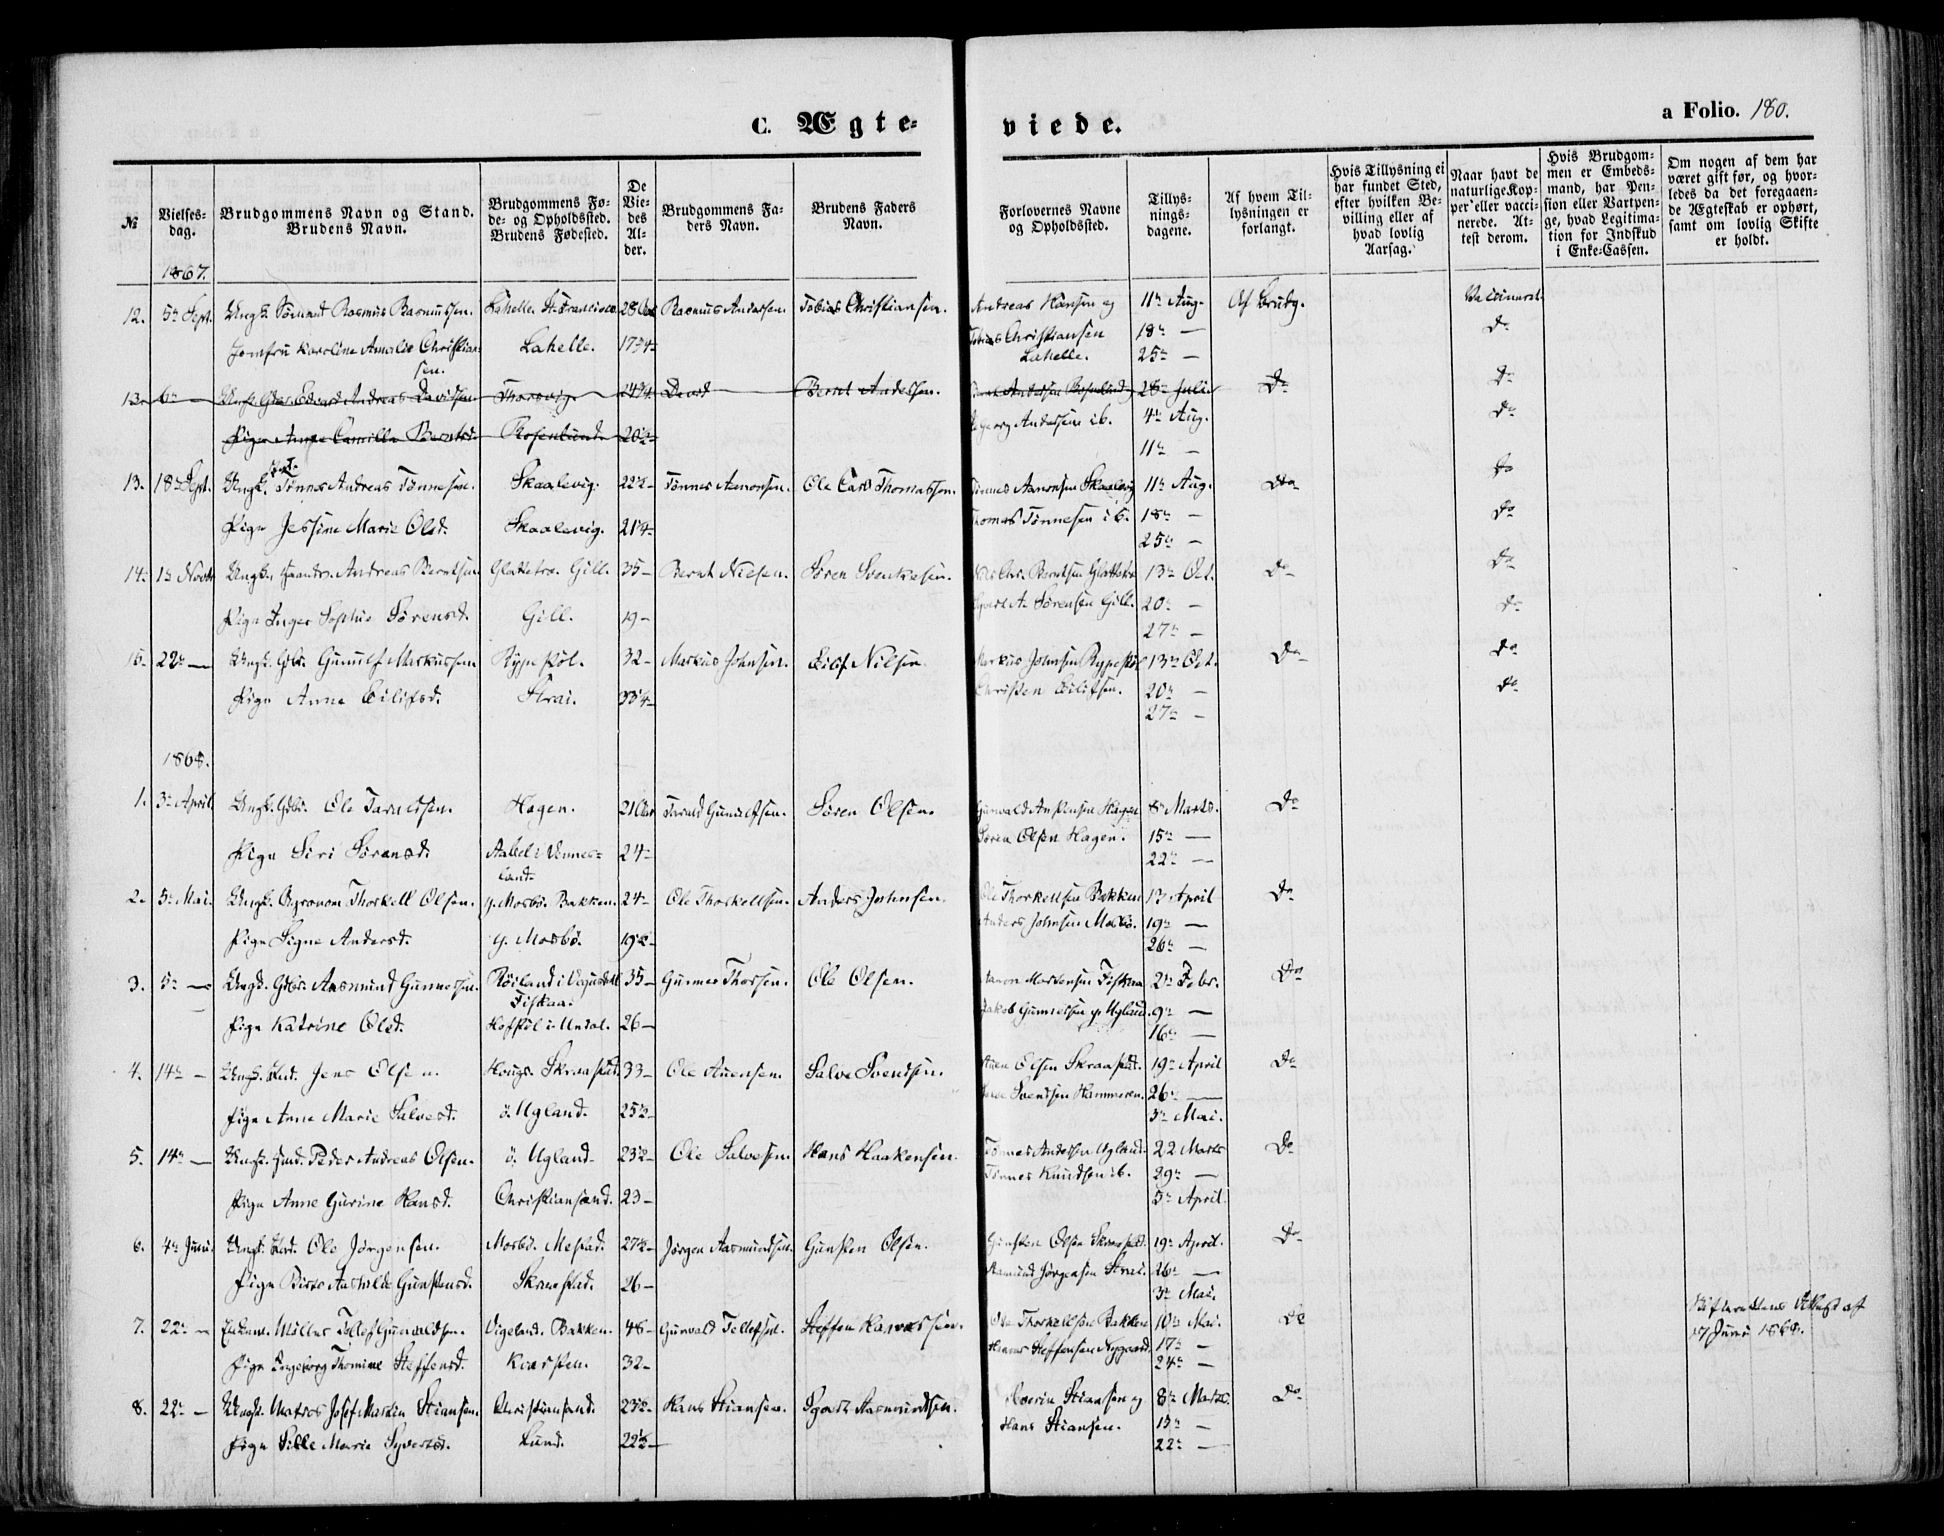 C. Ægte- viede.
a Folio. 180.
№
Vielses-dag.
Brudgommens Navn og Stand. Brudens Navn.
Brudgommens Fø-de- og Opholdssted. Brudens Fødested.
De Vie-des Al-der.
Brudgommens Fa-ders Navn.
Brudens Faders Navn.
Forlovernes Navne og Opholdssted.
Tillys-nings-dagene.
Af hvem Til-lysningen er forlangt.
Hvis Tillysning ei har fundet Sted, efter hvilken Be-villing eller af hvad lovlig Aarsag.
Naar havt de naturlige Kop-per eller vacci-nerede. At-test derom.
Hvis Brudgom-men er Embeds-mand, har Pen-sion eller Vartpen-ge, hvad Legitima-tion for Indskud i Enke-Cassen.
Om nogen af dem har været gift før, og hvor-ledes da det foregaaen-de Ægteskab er ophørt, samt om lovlig Skifte er holdt.
1867.
12. 5te Sept. Ungk. Rasmus Rasmussen. Lahelle. 28 Rasmus Andersen. Tobias Christiansen. Andreas Hansen og 11te Aug. Af Brudg.
Jomfru Karoline Amalie Christian- Lahelle. 17 Tobias Christiansen 18de — do
sen. Lahelle. 25de —
13. 6te — Edvard Andreas Davidsen 24 David Bernt Andersen. Bernt Andersen Rosenlund 28de Juli Do do
Pige Camilla Berntsd. Rosenlund 20½ Andersen ib. 4de Aug. do
11te —
13. 18de Sept. Ungk. Tönnes Andreas Tönnesen. Skaalevig. 22½ Tönnes Aamonsen. Ole Carl Thomassen. Tönnes Aamonsen Skaalevig 11te Aug. Do do
Pige Jessine Marie Olsd. Skaalevig. 21¼ Thomas Tönnesen ib. 18de — do
25de —
14. 1ste Novbr Ungk. Andreas Berntsen Glattetre. Gill. 35 — Bernt Nielsen. Sören Svenkesen. Chr. Berntsen Glattetre 13de Oct. Do do
Pige Inger Sophie Sörensd. Gill. 19 — A. Sörensen Gill. 20de — do
27de —
15. 22de — Ungk. Gbr. Gunulf Markussen 32 — Markus Johnsen. Eilef Nilsen. Markus Johnsen 13de Oct. Do do
Pige Anne Eilifsd. Strai. 33¼ Christen Eilifsen. 20de — do
27de —
1868.
1. 3de April Ungk. Gbr. Ole Taraldsen. Hagen. 21 Aar Tarald Gunulfsen. Sören Olsen. Gunvald Hagen 8de Marts. Do
Pige Siri Sörensd. Aabel i Vennes- 24 — Sören Olsen Hagen. 15de —
land. 22de —
2. 5te Mai. Ungk. Agronom Thorkell Olsen. y. Mosbö. Bakken. 24 — Ole Thorkellsen. Anders Johnsen. Ole Thorkellsen Bakken 13 April Do
Pige Signe Andersd. y. Mosbö. 19½ Anders Johnsen Mosbö. 19de —
26de —
3. 5te — Ungk. Gbr. Aasmund Gunnersen. Röiland i 35 — Gunner Thorsen. Ole Olsen. Mortensen Fiskaa 2den Febr. Do
Fiskaa.
Pige Katrine Olsd. i Undal. 26 — Jakob Gunnersen y. Ugland. 9de —
16de —
4. 14de — Ungk. Jens Olsen. Skraastad. 33 — Ole Auensen. Salve Svendsen. Auen Olsen Skraastad. 19de April Do
Pige Anne Marie Salvesd. ö. Ugland. 25½ Svendsen Hammeren. 26de —
3de Mai.
5. 14de — Ungk. Peder Andreas Olsen. ö. Ugland. 23½ Ole Salvesen. Hans Haakensen. Tönnes Andersen Ugland 22 Marts Do
Pige Anne Gurine Hansd. Christiansand. 23 — Tönnes Knudsen ib. 29de —
5te April
6. 4de Juni. Ungk. Ole Jörgensen. Mosbö. Mestad. 27½ Jörgen Aasmundsen. Gunsten Olsen. Gunsten Olsen Skraastad. 19de April. Do
Pige Aashilde Gunstensd. Skraastad. 26 — Aamund Jörgensen Strai. 26de —
3de Mai.
7. 22de — Enkem. Möller Tellef Gunvaldsen. Vigeland. Bakken. 46 — Gunvald Tellefsen. Steffen Ole Thorkellsen Bakken 10de Mai. Do Skifterettens Attest af
17 Juni 1868.
Pige Ingeborg Thomine Steffensd. Kvarsten. 32 — Steffensen Nygaard. 17de —
24de —
8. 22de — Ungk. Matros Josef Martin Stiansen. Christiansand. 23½ Hans Stiansen. Aasmundsen. Stiansen og 8de Marts. Do
Pige Sille Marie Syvertsd. Lund. 22½ Hans Stiansen. 15de —
22de —